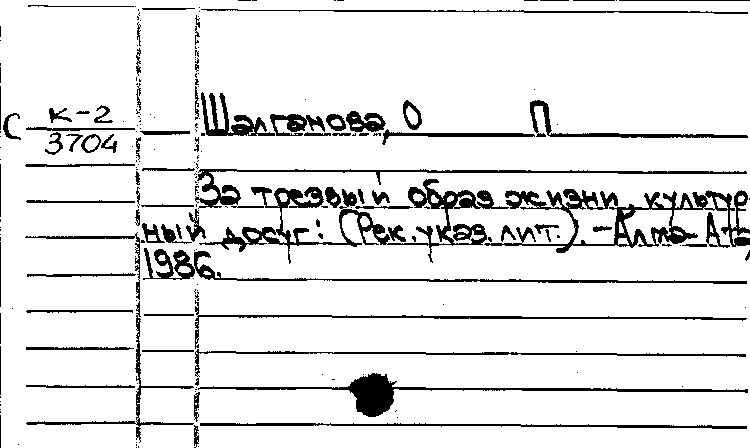 С К-2
3704
Шалганова, О П
За трезвый образ жизни, культур-
ный досуг: (Рек. указ. лит.). - Алма-Ата,
1986.